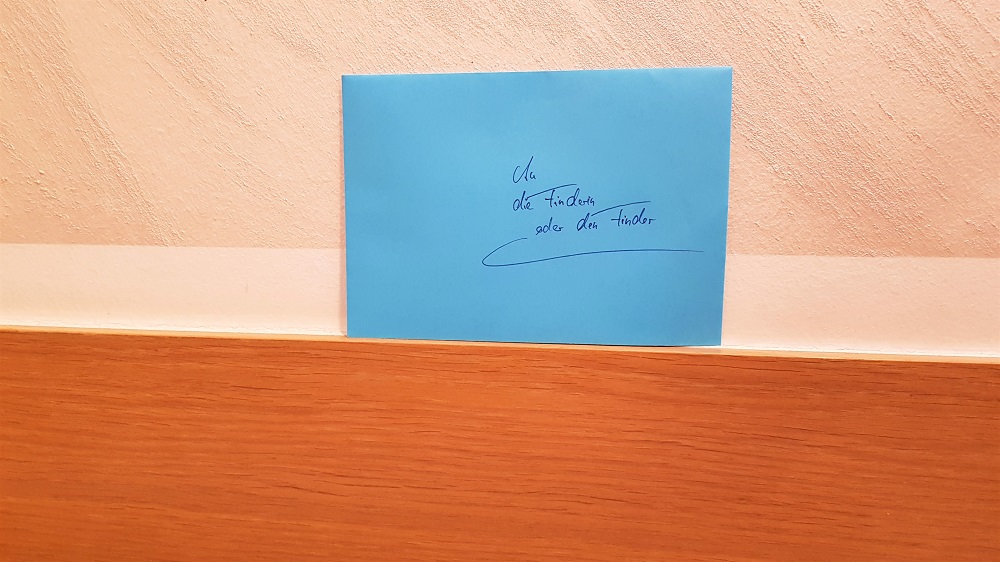 An
die Finderin
oder den Finder